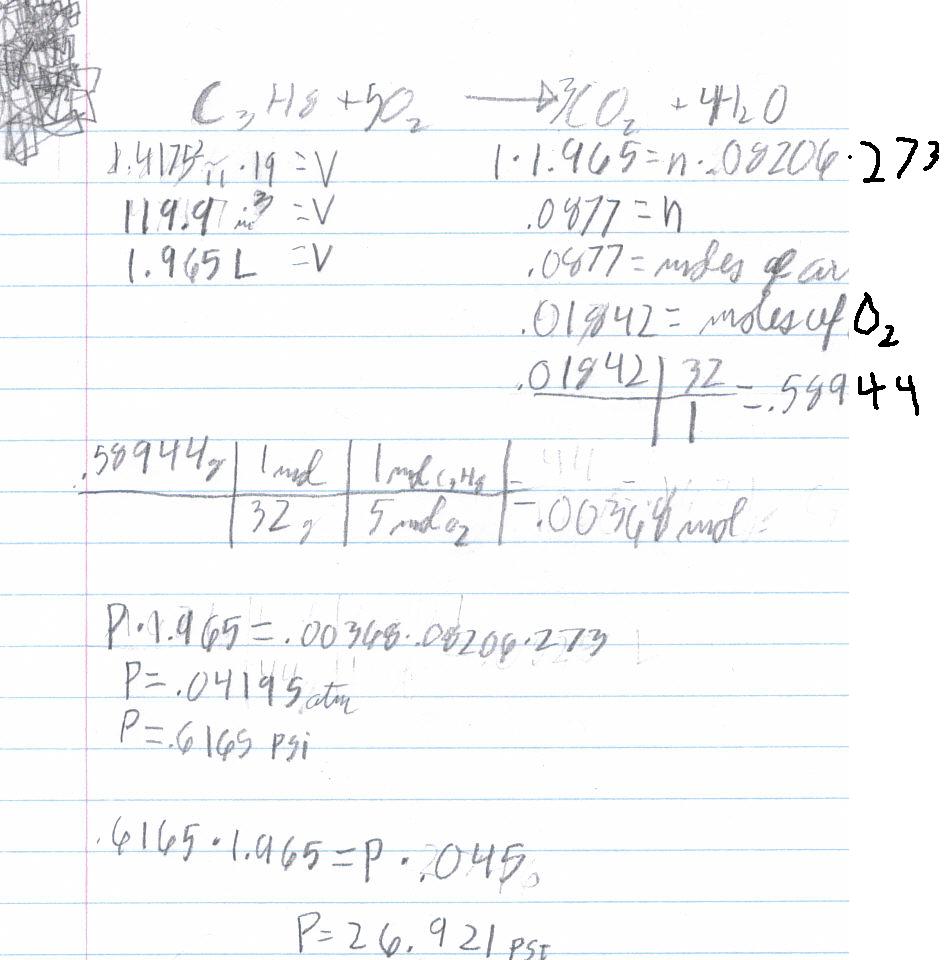 C₃H8 + 5O₂ → 3CO₂ + 4H₂O
1.4175² π · 19 = V
119.97 in³ = V
1.965 L = V
1 · 1.965 = n · .08206 · 273
.0877 = n
.0877 = moles of air
.01842 = moles of O₂
.01842 | 32 / 1 = .58944
.58944 g | 1 mol / 32 g | 1 mol C₃H8 / 5 mol O₂ | = .00368 mol
P · 1.965 = .00368 · .08206 · 273
P = .04195 atm
P = .6165 psi
.6165 · 1.965 = P · .045
P = 26.921 PSI